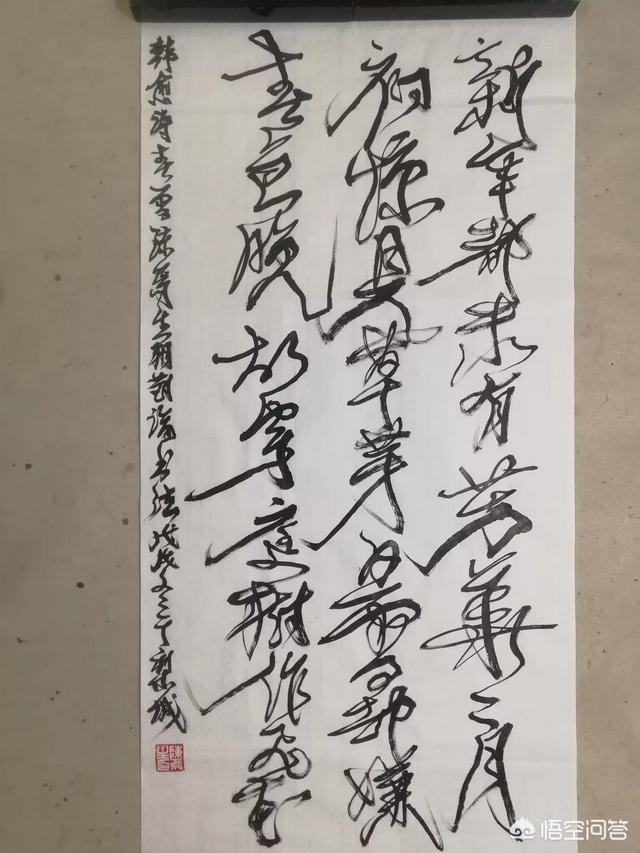 新年都未有芳華二月
初惊見草芽白雪却嫌
春色晚故穿庭樹作飞花
韩愈诗春雪 书法戊戌
悟空问答